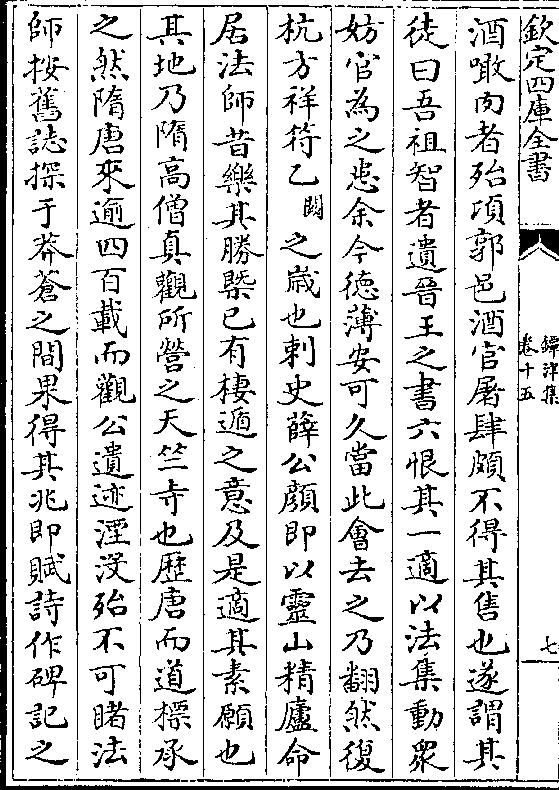 欽定四庫全書
鐔津集
卷十五
七
酒噉肉者殆項郭邑酒官屠肆頗不得其售也遂謂其
徒曰吾祖智者遺晉王之書六恨其一適以法集動衆
妨官為之患余今德薄安可久當此會去之乃翻然復
杭方祥符乙闕之歲也刺史薛公顔即以靈山精廬命
居法師昔樂其勝槩已有棲遁之意及是適其素願也
其地乃隋高僧真觀所營之天竺寺也歴唐而道標承
之然隋唐來逾四百載而觀公遺迹湮没殆不可睹法
師按舊誌探于莽蒼之間果得其兆即賦詩作碑記之